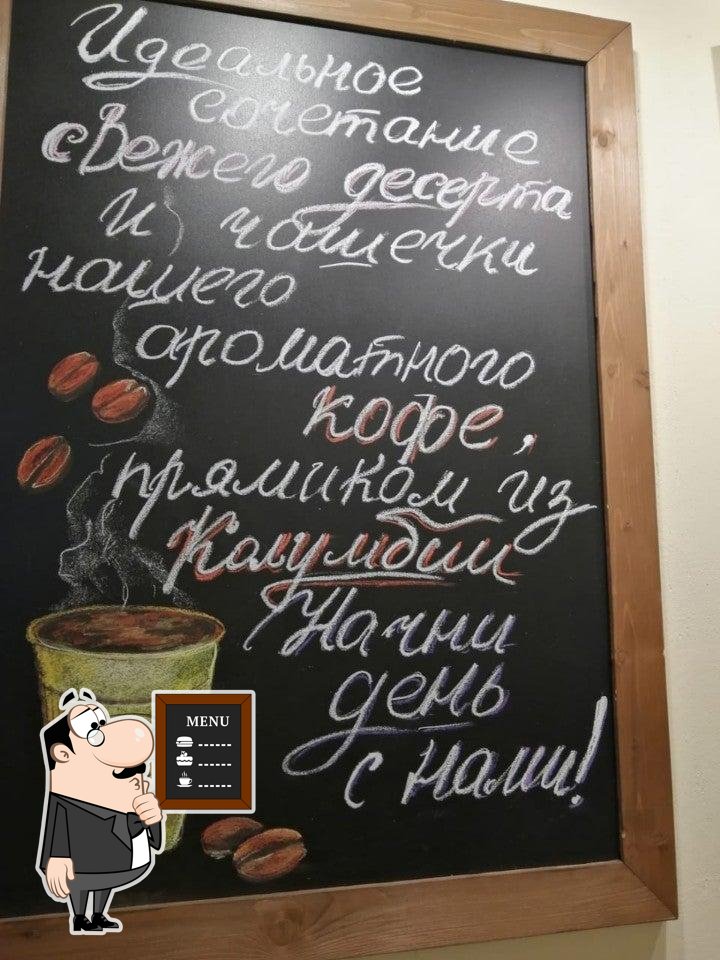 Идеальное
сочетание
свежего десерта
и чашечки
нашего
ароматного
кофе,
прямиком из
Колумбии
Начни
день
с нами!
MENU